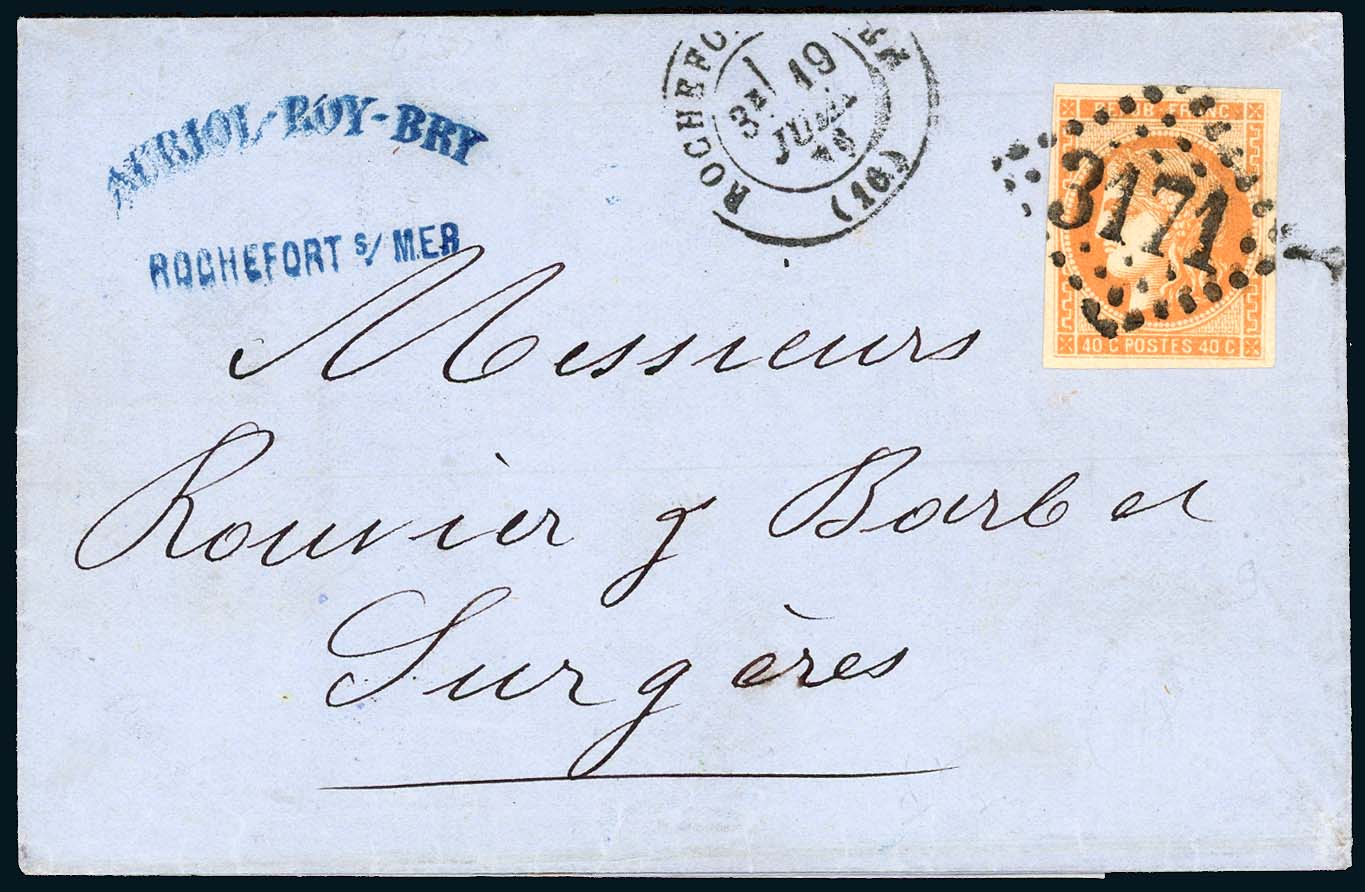 AURIOL-ROY-BRY
ROCHEFORT S/ MER
ROCHEFO
3E/ 19
(16)
REPUB. FRANC
3171
40 C POSTES 40 C
Messieurs
Rouvier & Barber
Surgères